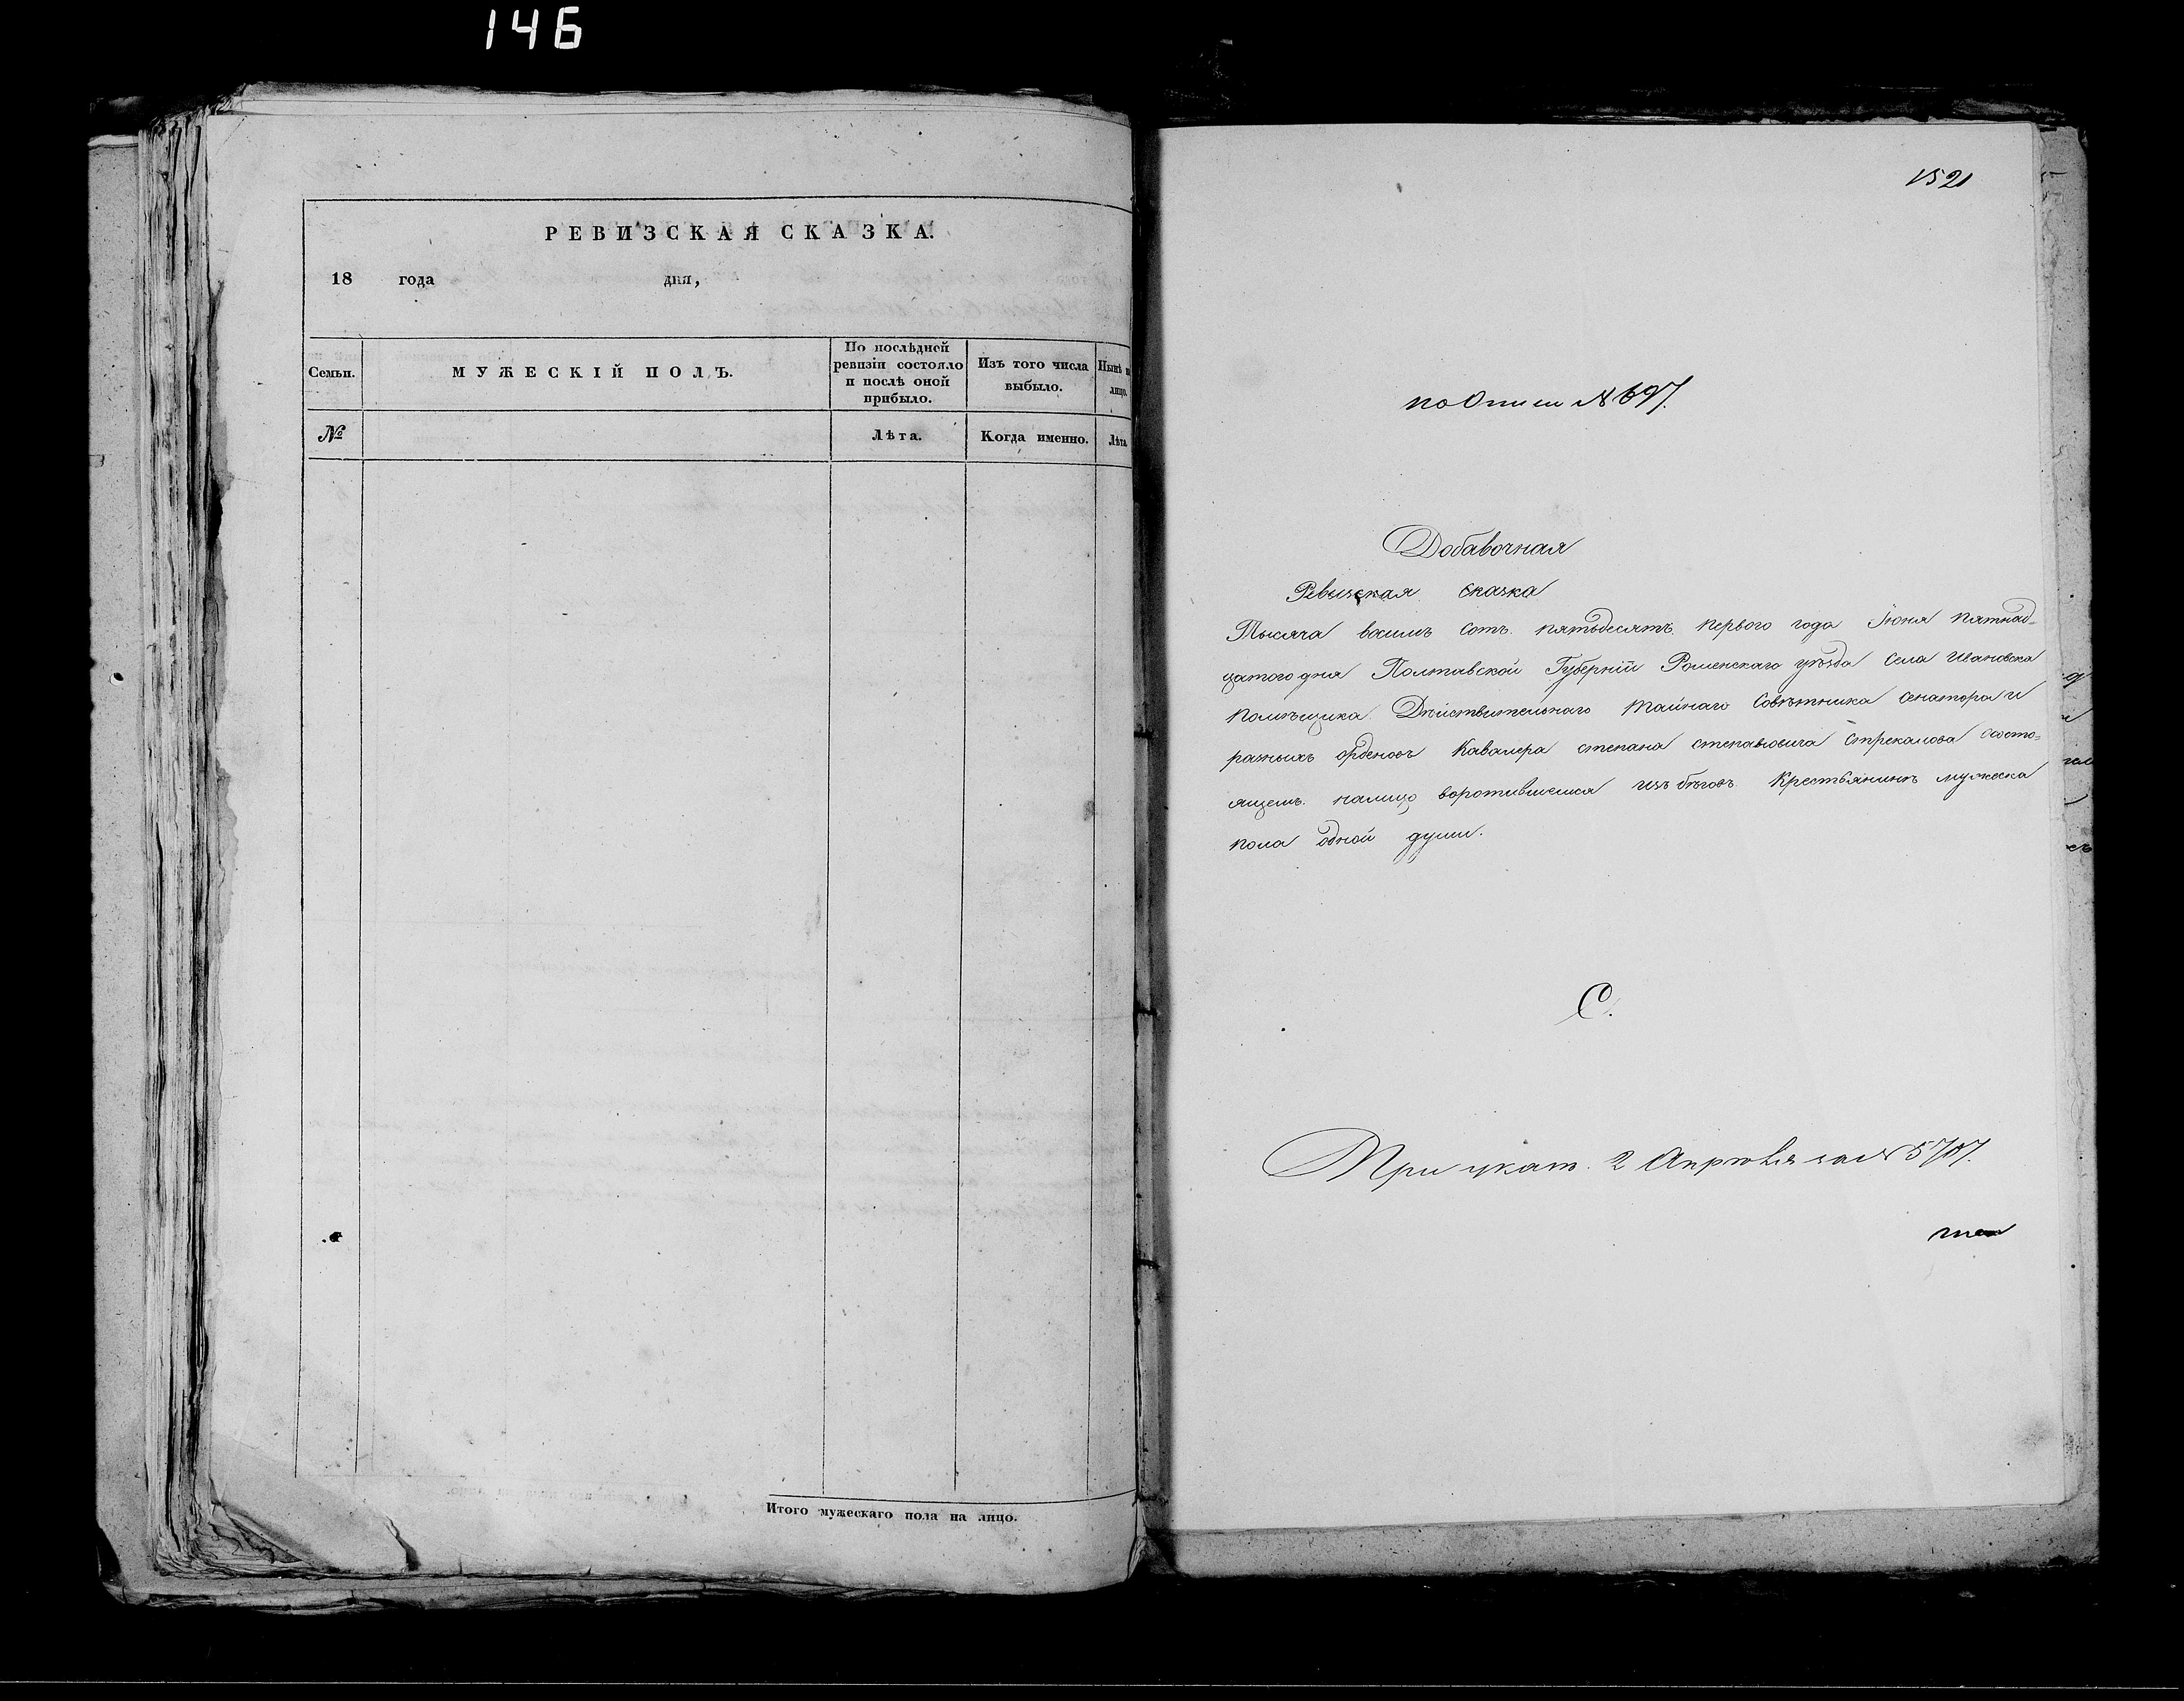 146
РЕВИЗСКАЯ СКАЗКА.
18 года дня,
Семьи.
МУЖЕСКІЙ ПОЛЪ.
По послѣдней
ревизіи состояло
и послѣ оной
прибыло.
Изъ того числа
выбыло.
Нынѣ
лицо.
№
Лѣта.
Когда именно.
Лѣта
Итого мужескаго пола на лицо.
1521
по Описи № 697.
Добавочная
Ревизская сказка
Тысяча восимъ сотъ пятьдесятъ первого года Іюня пятнад-
цатого дня Полтавской Губерніи Роменскаго уѣзда села Ивановска
помѣщика Дѣйствительнаго Тайнаго Совѣтника Сенатора и
разныхъ орденовъ Кавалера степана степановича Стрекалова ососто-
ящемъ налицо воротившемся изъ бѣговъ Крестьянинѣ мужеска
пола одной души.
С.
При указ. 2 Апрѣля за № 5707.